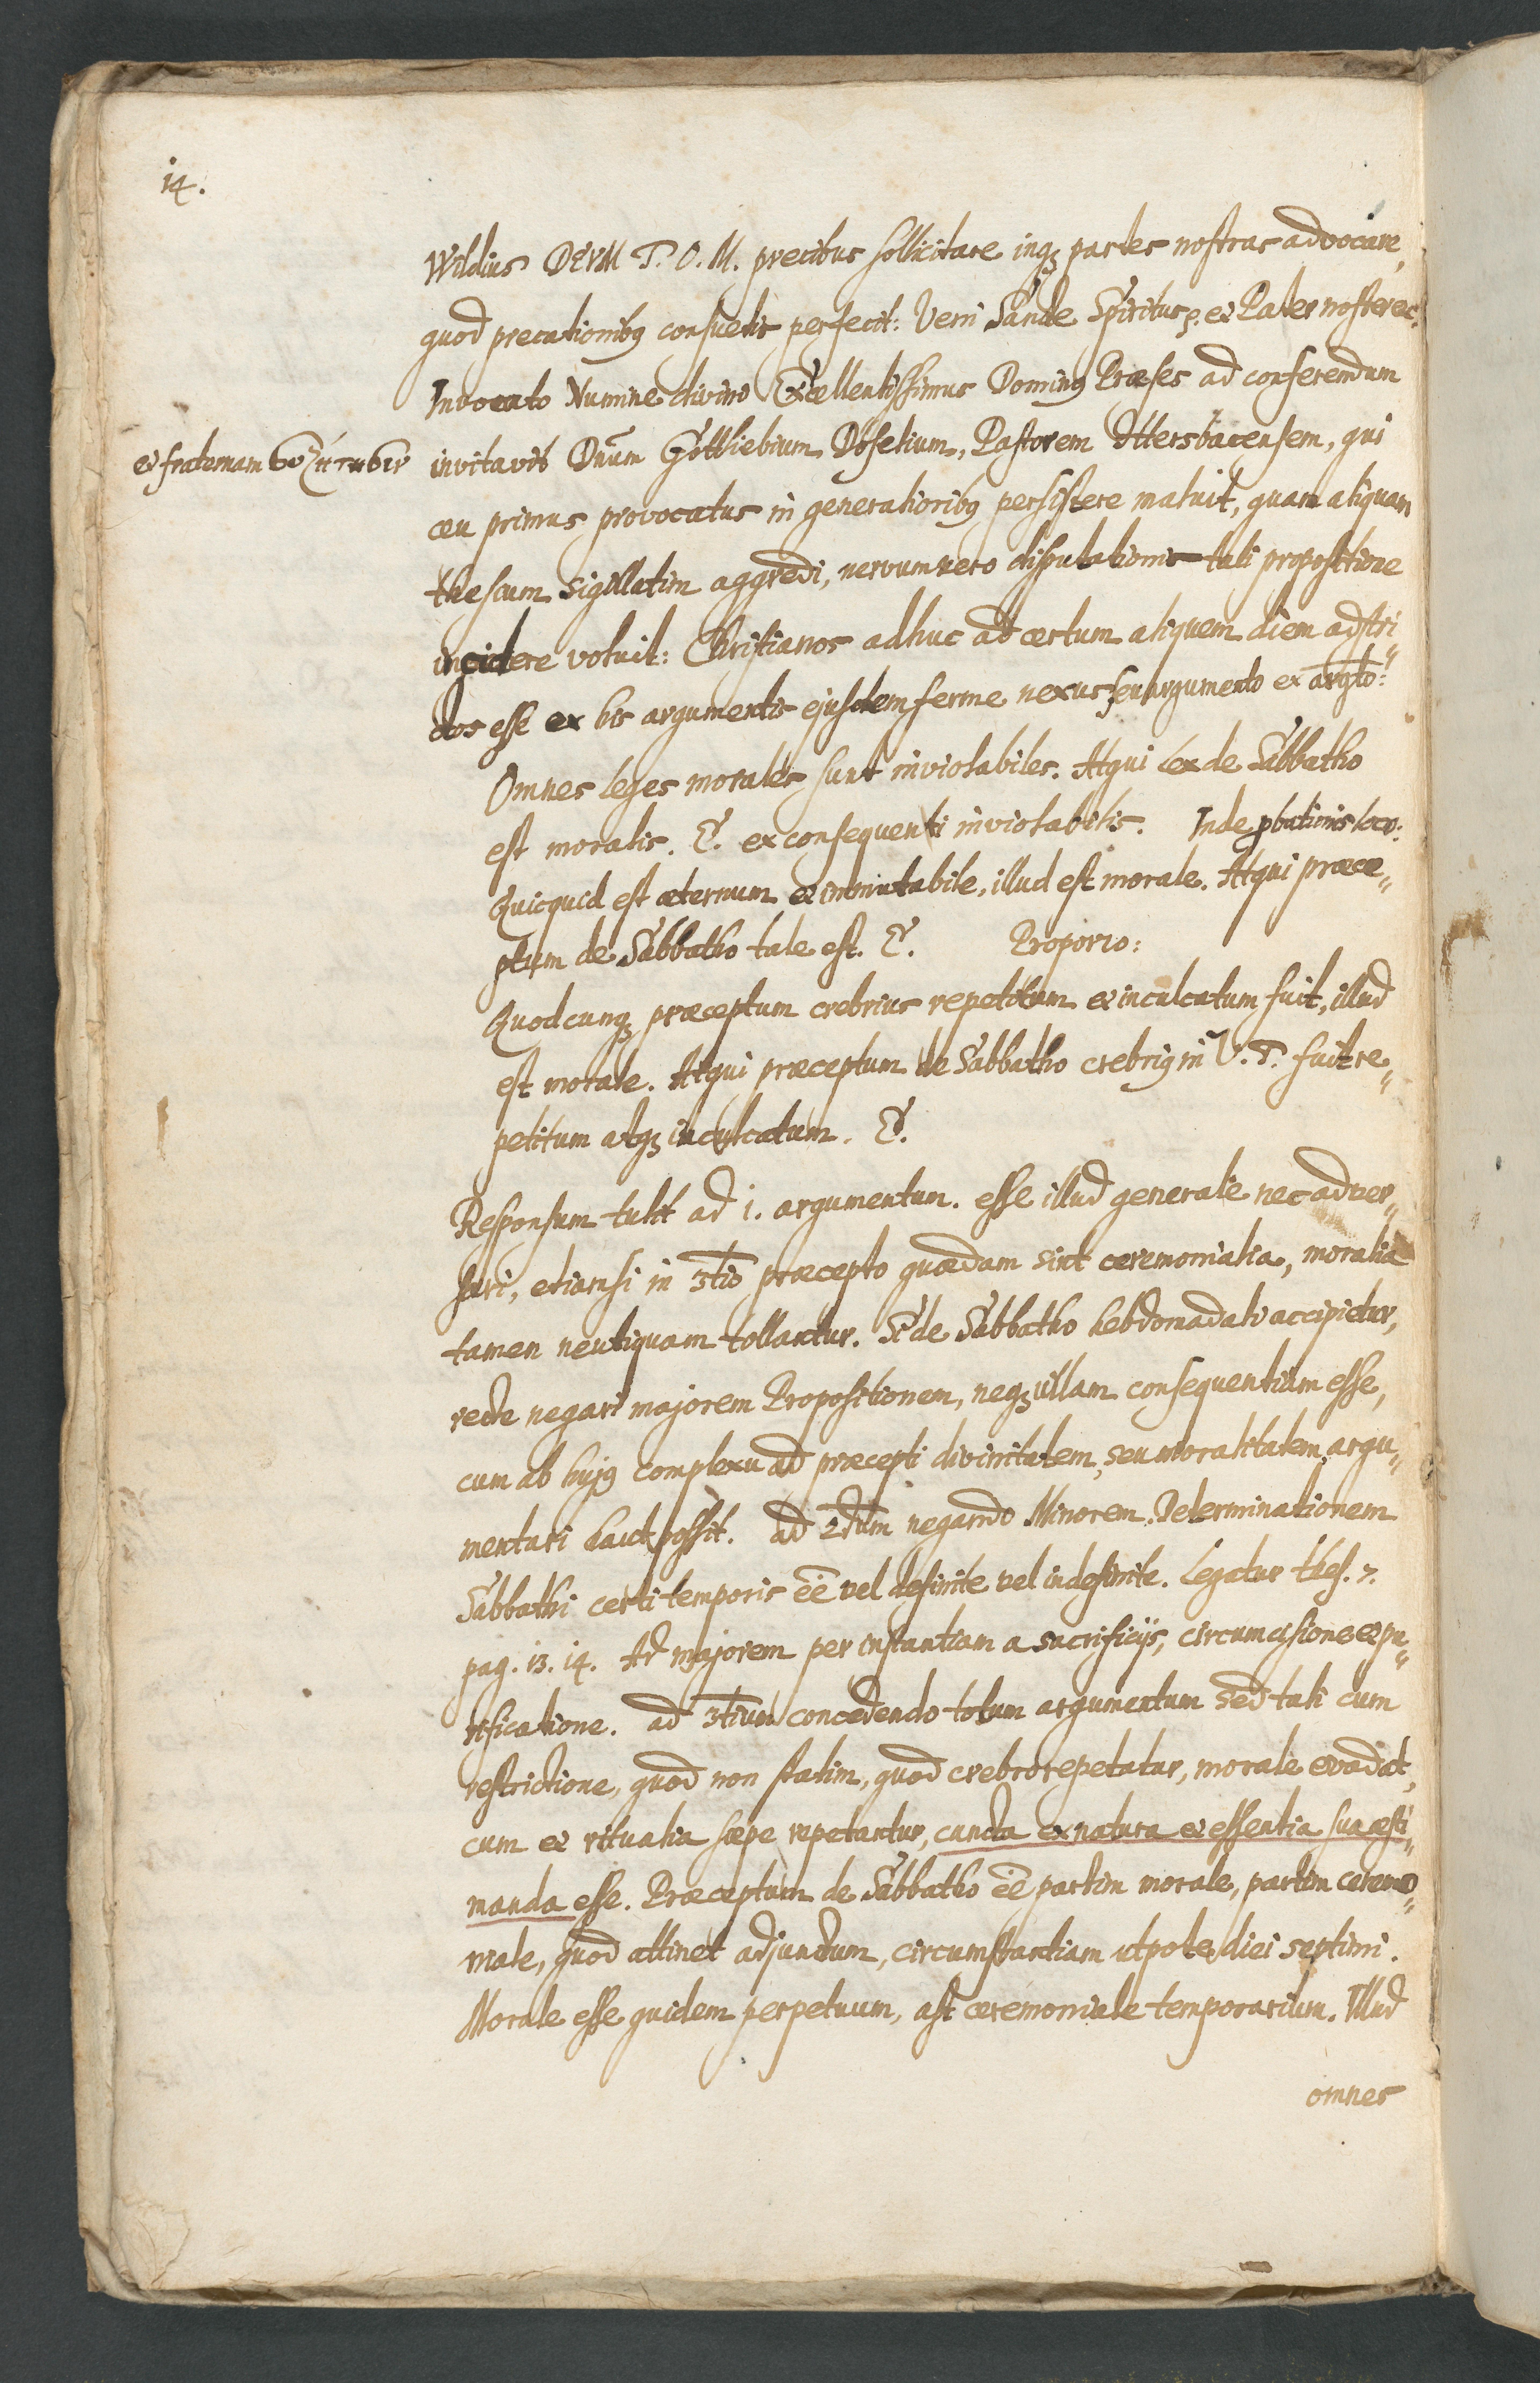 14.
Wildius DEVM T. O. M. precibus sollicitare inqꝫ partes nostras advocare,
quod precationibꝰ consuetis perfecit: Veni Sancte Spiritus p. et Pater noster ec.
Invocato Numine divino Excellentissimus Dominꝰ Præses ad conferendum
et fraternam
invitavit Dnūm Gottliebium Doselium, Pastorem Ittersbacensem, qui
ceu primus provocatus in generalioribꝰ persistere maluit, quam aliquam
thesium sigillatim aggredi, nervum vero disputationis tali propositione
incidere voluit: Christianos adhuc ad certum aliquem diem adstri„
ctos esse ex his argumentis ejusdem ferme nexus seu argumento ex argto:
Omnes leges morales sunt inviolabiles. Atqui Lex de Sabbatho
est moralis. E. ex consequenti inviolabilis. Inde ꝓbationis loco:
Quicquid est æternum et immutabile, illud est morale. Atqui præce„
ptum de Sabbatho tale est. E. Proporro:
Quodcunqꝫ præceptum crebrius repetitum et inculcatum fuit, illud
est morale. Atqui præceptum de Sabbatho crebriꝰ in V. T. fuit re„
petitum atqꝫ inculcatum. E.
Responsum tulit ad 1. argumentum. esse illud generale nec adver„
sari, etiamsi in 3tio præcepto quædam sint ceremonialia, moralia
tamen neutiquam tollantur. Si de Sabbatho hebdomadali accipietur,
recte negari majorem Propositionem, neqꝫ ullam consequentiam esse,
cum ab hujꝰ complexu ad præcepti divinitatem, seu moralitatem argu„
mentari haut possit. ad 2dum negando Minorem. Determinationem
Sabbathi certi temporis eē vel definite vel indefinite. Legatur thes. 7.
pag. 13. 14. Ad majorem per instantiam a sacrificijs, circumcisione et pu„
rificatione. ad 3tium concedendo totum argumentum sed tali cum
restrictione, quod non statim, quod crebro repetatur, morale evadat,
cum et ritualia sæpe repetantur, cuncta ex natura et essentia sua æsti„
manda esse. Præceptum de Sabbatho eē partim morale, partim ceremo„
niale, quod attinet adjunctum, circumstantiam utpote diei septimi.
Morale esse quidem perpetuum, ast ceremoniale temporarium. Illud
omnes